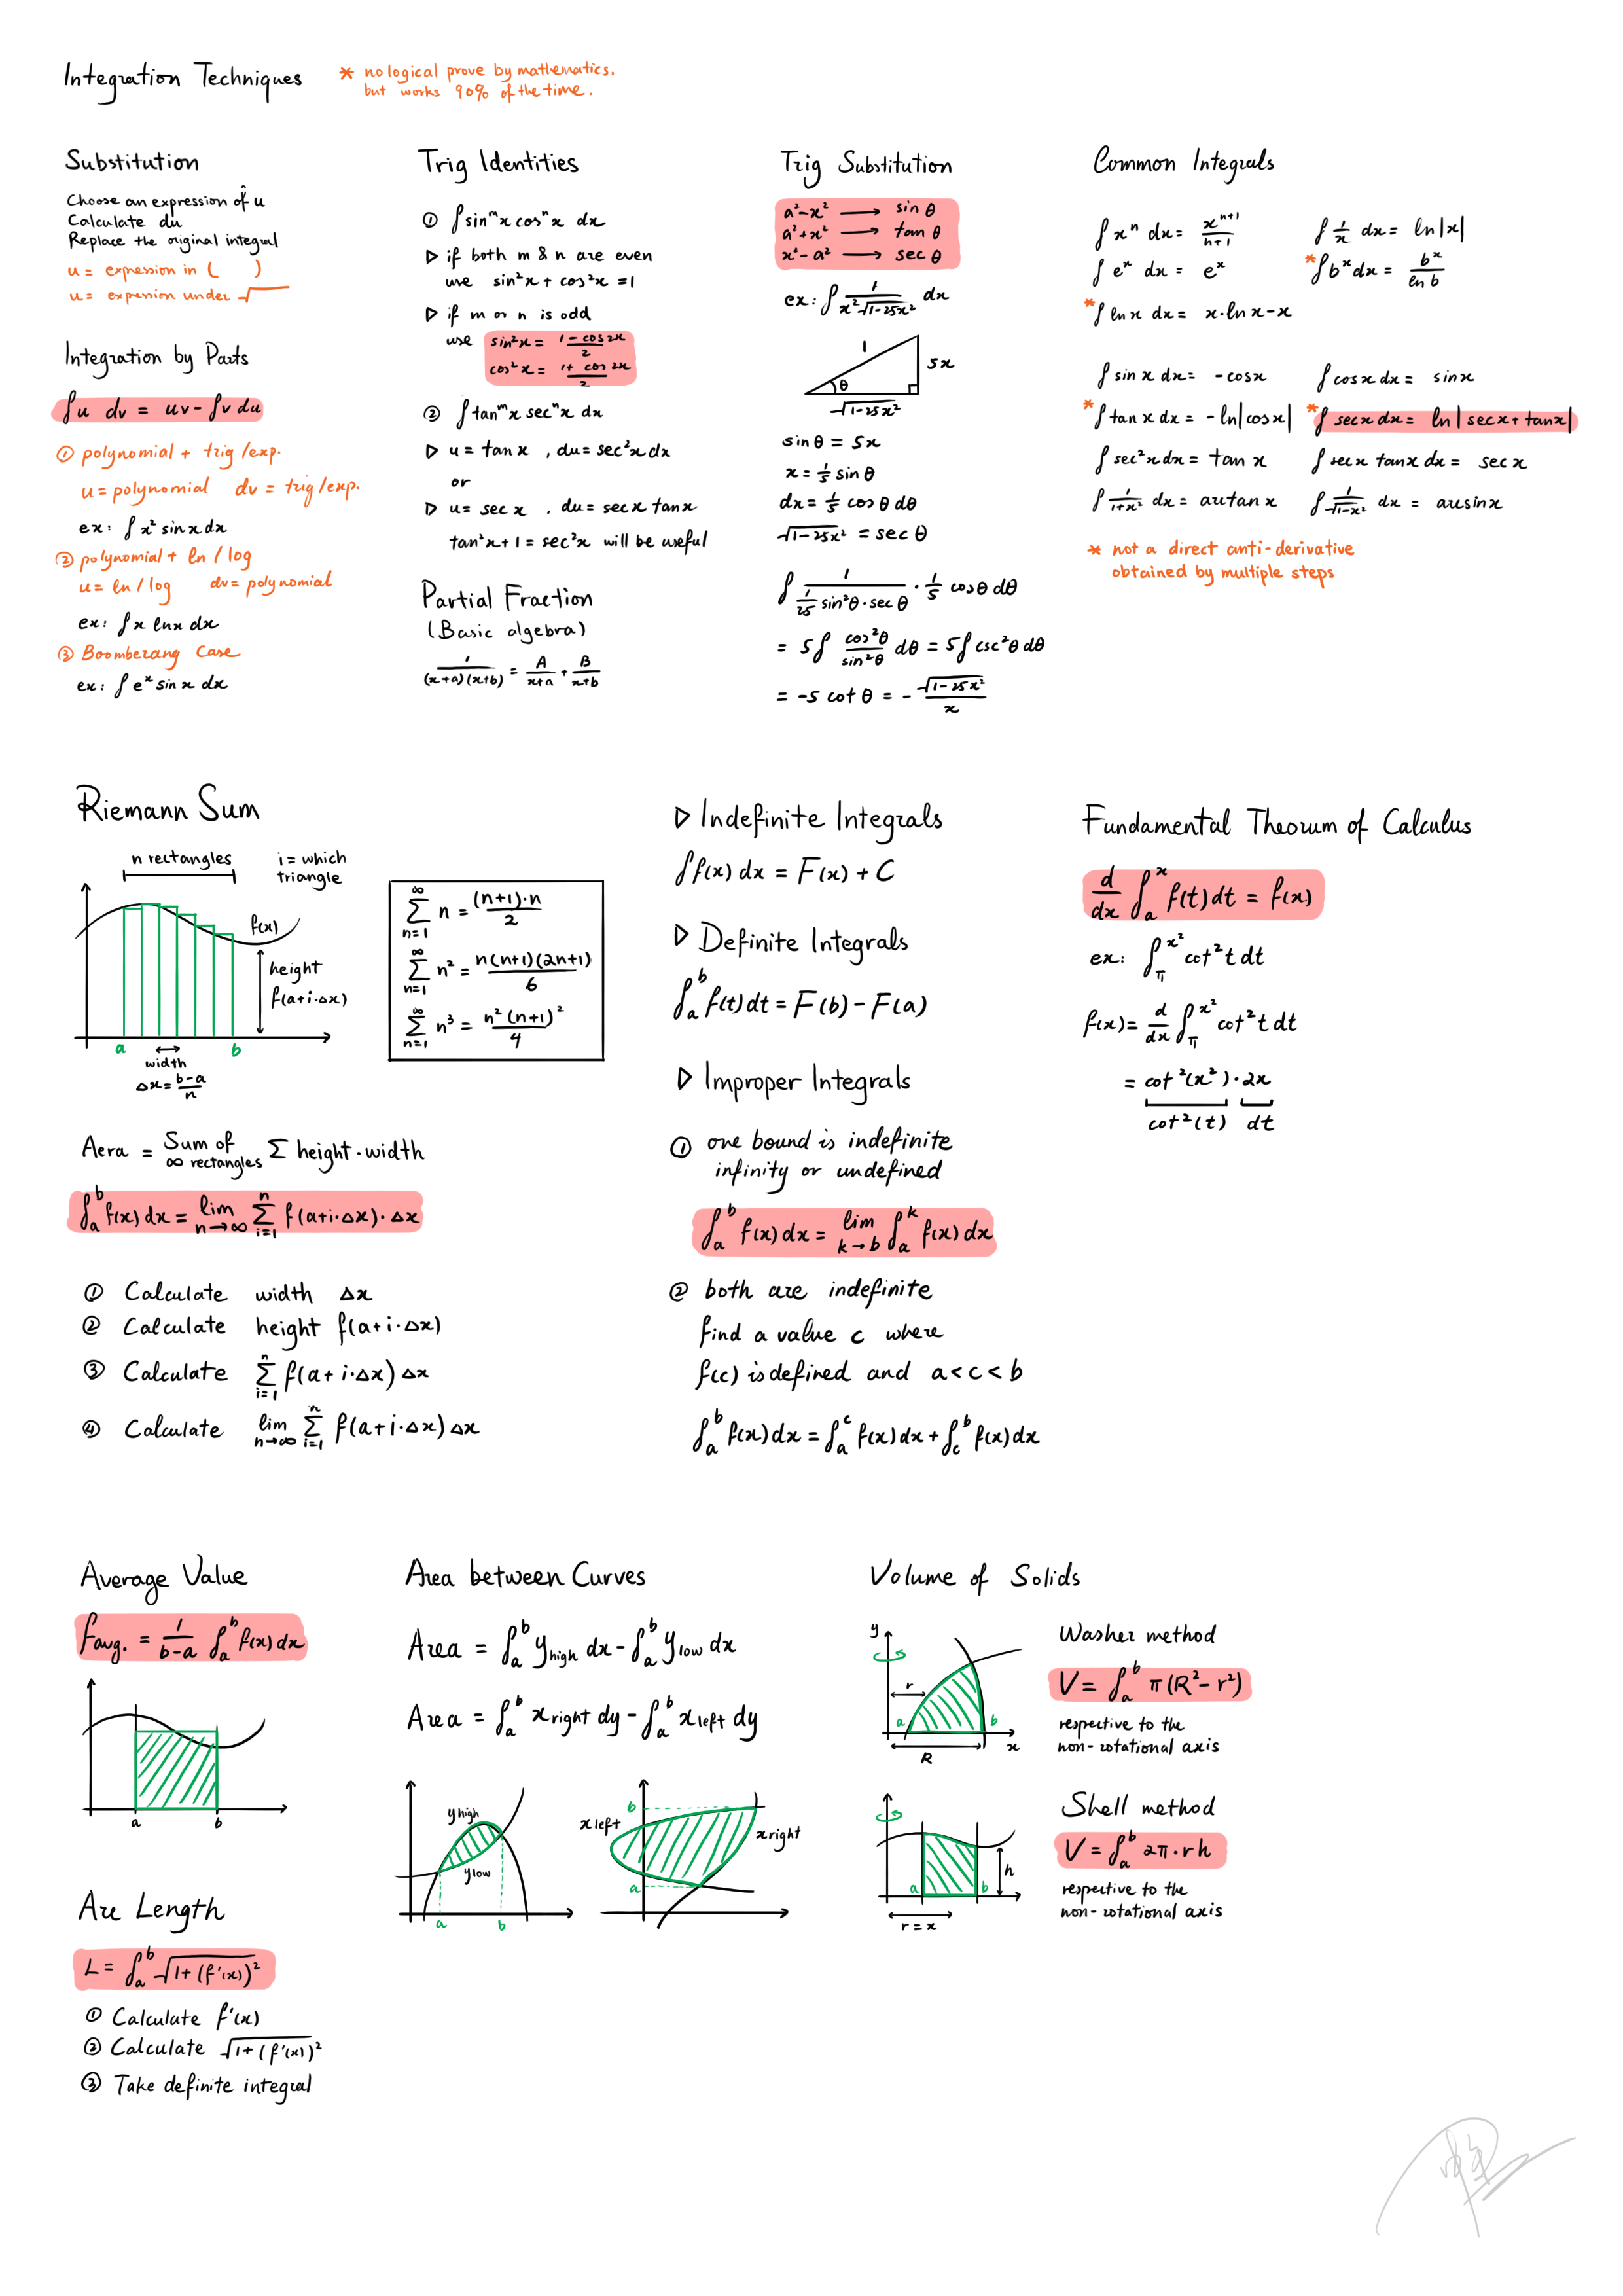 Integration Techniques
* no logical prove by mathematics.
but works 90% of the time.
Substitution
Choose an expression of u
Calculate du
Replace the original integral
u = expression in (   )
u = expression under √
Integration by Parts
∫u dv = uv - ∫v du
① polynomial + trig/exp.
u = polynomial dv = trig/exp.
ex: ∫x² sin x dx
② polynomial + ln / log
u = ln / log dv = polynomial
ex: ∫x lnx dx
③ Boomberang Case
ex: ∫eˣ sin x dx
Trig Identities
① ∫sinᵐx cosⁿx dx
▷ if both m & n are even
use sin²x + cos²x = 1
▷ if m or n is odd
use sin²x = (1 - cos 2x)/2
cos²x = (1 + cos 2x)/2
② ∫tanᵐx secⁿx dx
▷ u = tan x , du = sec²x dx
or
▷ u = sec x , du = sec x tan x
tan²x + 1 = sec²x will be useful
Partial Fraction
(Basic algebra)
1/((x+a)(x+b)) = A/(x+a) + B/(x+b)
Trig Substitution
a²-x² → sin θ
a²+x² → tan θ
x²-a² → sec θ
ex: ∫ 1/(x²√(1-25x²)) dx
1
5x
θ
√(1-25x²)
sin θ = 5x
x = 1/5 sin θ
dx = 1/5 cos θ dθ
√(1-25x²) = sec θ
∫ 1/(1/25 sin²θ · sec θ) · 1/5 cos θ dθ
= 5∫ cos²θ/sin²θ dθ = 5∫csc²θ dθ
= -5 cot θ = - √(1-25x²)/x
Common Integrals
∫xⁿ dx = xⁿ⁺¹/(n+1) ∫1/x dx = ln|x|
∫eˣ dx = eˣ *∫bˣ dx = bˣ/ln b
*∫ln x dx = x·ln x - x
∫sin x dx = -cosx ∫cos x dx = sinx
*∫tan x dx = -ln|cosx| *∫sec x dx = ln|secx + tanx|
∫sec²x dx = tan x ∫sec x tanx dx = sec x
∫1/(1+x²) dx = arctan x ∫1/√(1-x²) dx = arcsin x
* not a direct anti-derivative
obtained by multiple steps
Riemann Sum
n rectangles
i = which
triangle
f(x)
height
f(a+i·Δx)
a b
width
Δx = (b-a)/n
∞Σn=1 n = (n+1)·n/2
∞Σn=1 n² = n(n+1)(2n+1)/6
∞Σn=1 n³ = n²(n+1)²/4
Aera = Sum of ∞ rectangles Σ height · width
∫ₐᵇ f(x) dx = lim n→∞ nΣi=1 f(a+i·Δx) · Δx
① Calculate width Δx
② Calculate height f(a+i·Δx)
③ Calculate nΣi=1 f(a+i·Δx) Δx
④ Calculate lim n→∞ nΣi=1 f(a+i·Δx) Δx
▷ Indefinite Integrals
∫f(x) dx = F(x) + C
▷ Definite Integrals
∫ₐᵇ f(t) dt = F(b) - F(a)
▷ Improper Integrals
① one bound is indefinite
infinity or undefined
∫ₐᵇ f(x) dx = lim k→b ∫ₐᵏ f(x) dx
② both are indefinite
find a value c where
f(c) is defined and a < c < b
∫ₐᵇ f(x) dx = ∫ₐᶜ f(x) dx + ∫cᵇ f(x) dx
Fundamental Theorum of Calculus
d/dx ∫ₐˣ f(t) dt = f(x)
ex: ∫π^x² cot²t dt
f(x) = d/dx ∫π^x² cot²t dt
= cot²(x²) · 2x
cot²(t) dt
Average Value
favg. = 1/(b-a) ∫ₐᵇ f(x) dx
a b
Arc Length
L = ∫ₐᵇ √(1+(f'(x))²)
① Calculate f'(x)
② Calculate √(1+(f'(x))²)
③ Take definite integral
Area between Curves
Area = ∫ₐᵇ yhigh dx - ∫ₐᵇ ylow dx
Area = ∫ₐᵇ xright dy - ∫ₐᵇ xleft dy
yhigh
ylow
a b
b
xleft
xright
a
Volume of Solids
y
r
a b
x
R
Washer method
V = ∫ₐᵇ π(R²-r²)
respective to the
non-rotational axis
h
a b
r = x
Shell method
V = ∫ₐᵇ 2π·rh
respective to the
non-rotational axis